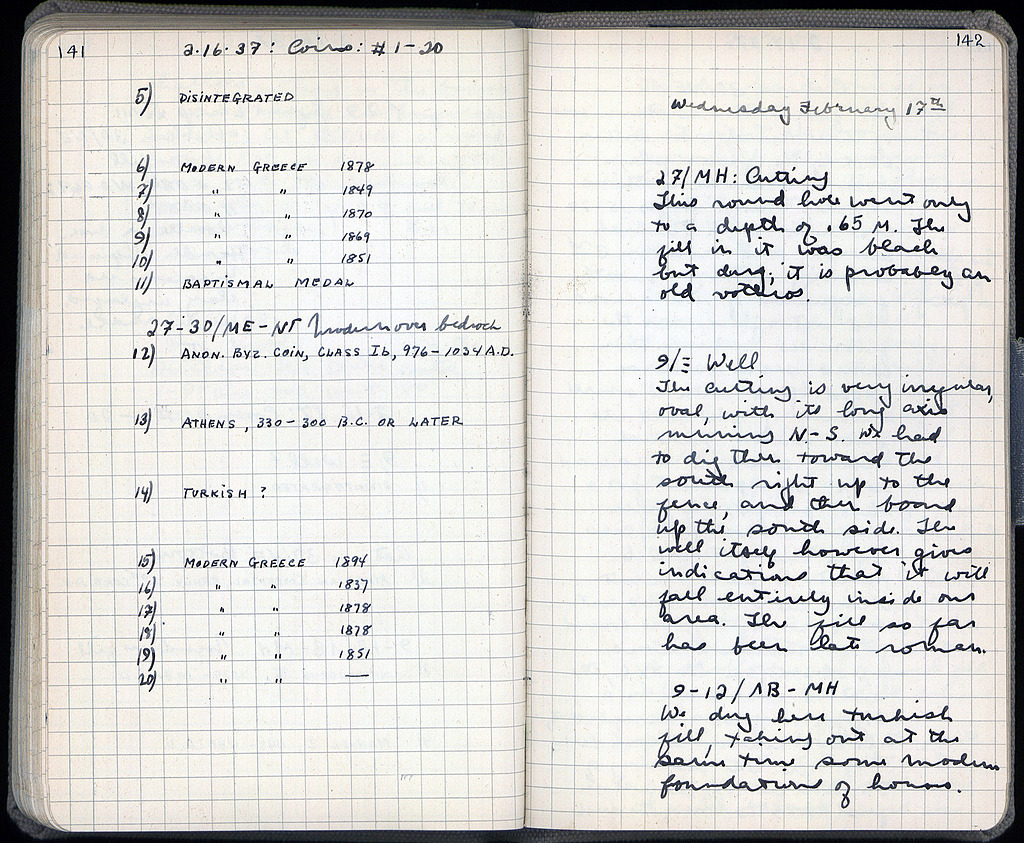 141
2.16.37: Coins: # 1-20
5) DISINTEGRATED
6) MODERN GREECE 1878
7) " " 1849
8) " " 1870
9) " " 1869
10) " " 1851
11) BAPTISMAL MEDAL
27-30/ME-NΓ Modern over bedrock
12) ANON. BYZ. COIN, CLASS Ib, 976-1034 A.D.
13) ATHENS, 330-300 B.C. OR LATER
14) TURKISH ?
15) MODERN GREECE 1894
16) " " 1837
17) " " 1878
18) " " 1878
19) " " 1851
20) " " —
142
Wednesday February 17th
27/MH: Cutting
This round hole went only
to a depth of .65 M. The
fill in it was black
but dung; it is probably an
old vothros.
9/Ξ Well
The cutting is very irregular,
oval, with its long axis
running N-S. We had
to dig then toward the
south right up to the
fence, and then board
up the south side. The
well itself however gives
indications that it will
fall entirely inside our
area. The fill so far
has been late roman.
9-12/ΛB-MH
We dug here turkish
fill, taking out at the
same time some modern
foundations of houses.